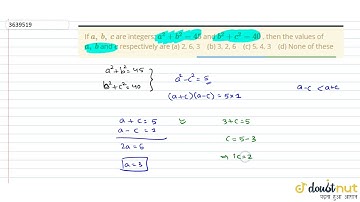 3639519
If a, b, c are integers a² + b² = 45 and b² + c² = 40, then the values of
a, b and c respectively are (a) 2, 6, 3 (b) 3, 2, 6 (c) 5, 4, 3 (d) None of these
a²+b² = 45
b²+c² = 40
a²-c² = 5
(a+c)(a-c) = 5×1
a-c < a+c
a + c = 5
a - c = 1
2a = 6
a = 3
3+c = 5
c = 5-3
c = 2
doubtnut